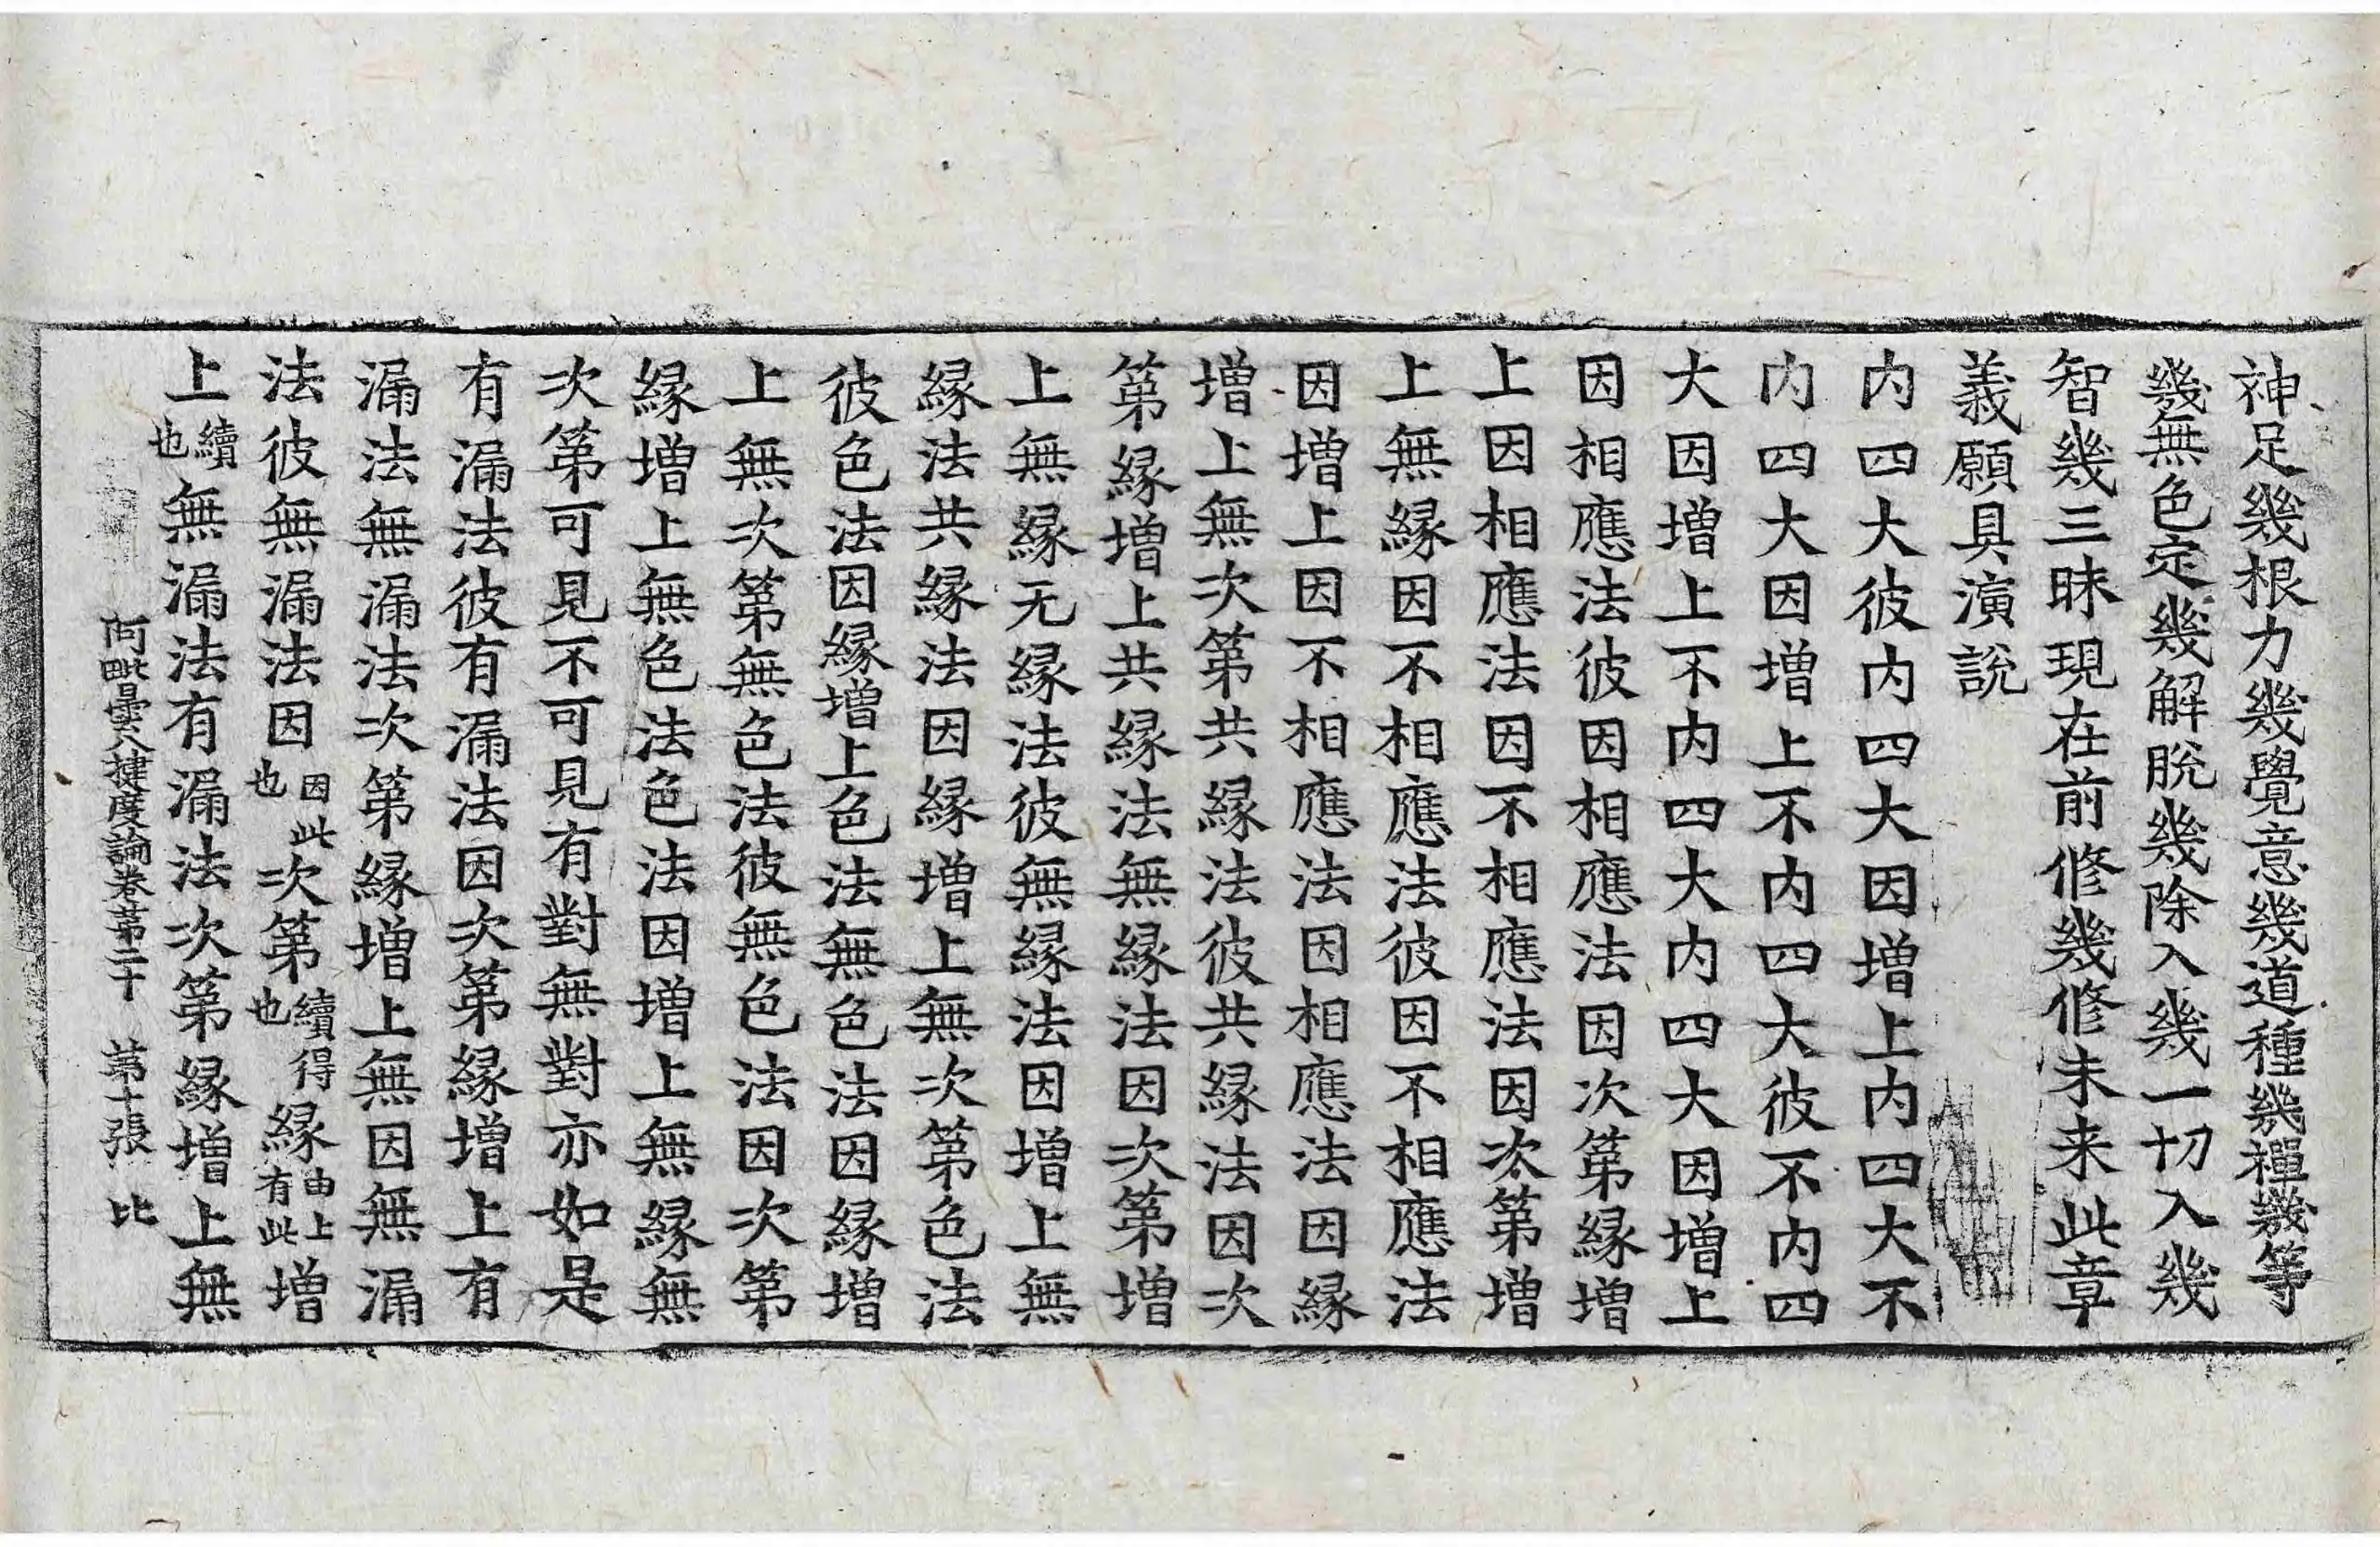 神足幾根力幾覺意幾道種幾禪幾等
幾無色定幾解脫幾除入幾一切入幾
智幾三昧現在前修幾修未来此章
義願具演說
内四大彼内四大因增上内四大不
内四大因增上不内四大彼不内四
大因增上不内四大内四大因增上
因相應法彼因相應法因次第縁增
上因相應法因不相應法因次第增
上無縁因不相應法彼因不相應法
因增上因不相應法因相應法因縁
增上無次第共縁法彼共縁法因次
第縁增上共縁法無縁法因次第增
上無縁无縁法彼無縁法因增上無
縁法共縁法因縁增上無次第色法
彼色法因縁增上色法無色法因縁增
上無次第無色法彼無色法因次第
縁增上無色法色法因增上無縁無
次第可見不可見有對無對亦如是
有漏法彼有漏法因次第縁增上有
漏法無漏法次第縁增上無因無漏
法彼無漏法因因此也次第續得也縁由上有此增
上續也無漏法有漏法次第縁增上無
阿毗曇八揵度論卷第二十 第十張 比